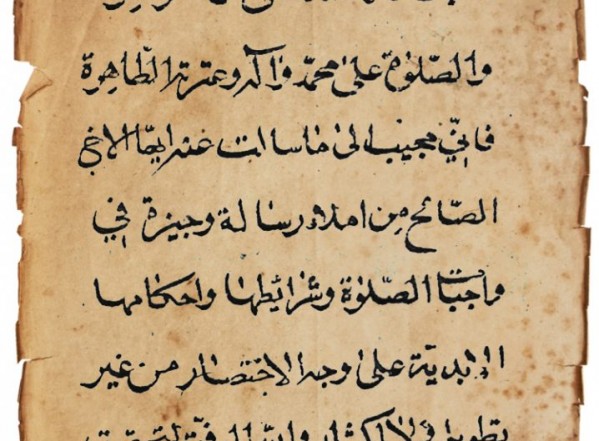 والصّلوة على محمّد وآله وعترته الطّاهرة
فانّي مجيب الى ما سالت عنه ايّها الاخ
الصّالح من املاء رسالة وجيزة في
واجبات الصّلوة وشرائطها واحكامها
على وجه الاختصار من غير